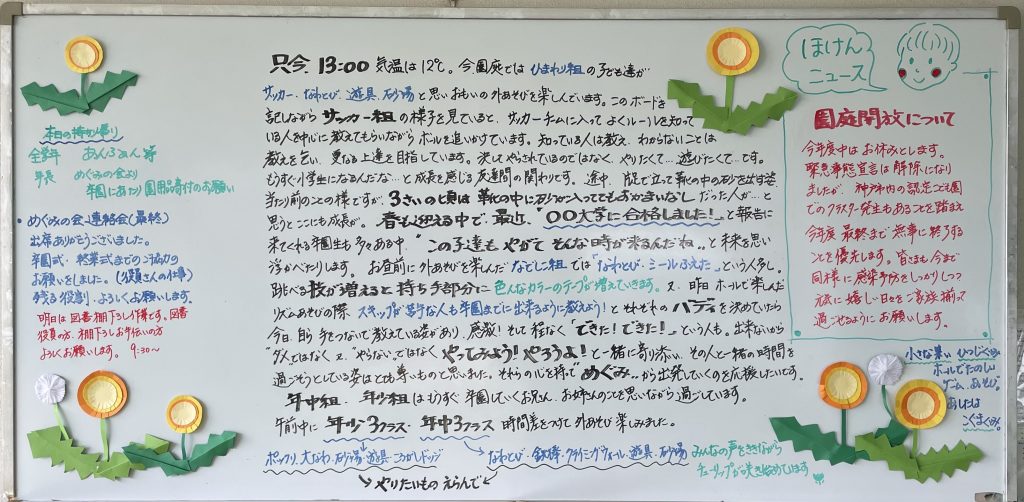 本日の持ち帰り
全学年 あんふぁん 等
年長 めぐみの会より
卒園にあたり園用品寄付のお願い
・めぐみの会 連絡会(最終)
出席ありがとうございました。
卒園式・終業式までのご協力の
お願いをしました。(役員さんの仕事)
残る役割、よろしくお願いします。
明日は図書棚下し作業です。図書
役員の方、棚下しお手伝いの方
よろしくお願いします。 9:30〜
只今、13:00 気温は12℃。今園庭では ひまわり組の子ども達が
サッカー・なわとび・遊具・砂場と思いおもいの外あそびを楽しんでいます。このボードを
記しながら サッカー組の様子を見ていると、サッカーチームに入って よくルールを知って
いる人を中心に教えてもらいながら ボールを追いかけています。知っている人は教え、わからないことは
教えを乞い、更なる上達を目指しています。決してやらされているのではなく、やりたくて…遊びたくて…です。
もうすぐ小学生になるんだね…と成長を感じる友達間の関わりです。途中、片足で立って靴の中の砂を出す姿。
当たり前のこの様ですが、3さいの頃は靴の中に砂が入ってても おかまいなしだった人が…と
思うとここにも成長が。春も迎える中で、最近、"〇〇大学に合格しました!"と報告に
来てくれる卒園生も多くある中、"この子達も やがて そんな時が来るんだね"と未来を思い
浮かべたりします。お昼前に外あそびを楽しんだ なでしこ組では「なわとび・ミールふえた」という人多し。
跳べる技が増えると 持ち手部分に 色んなカラーのテープが増えていきます。又、昨日ホールで楽しんだ
リズムあそびの際、スキップが苦手な人も 卒園までに出来るように教えよう!と それぞれの バディを決めていたら
今日、自ら手をつないで教えている姿があり、感激!そして程なく「できた!できた!」という人も。出来ないから
"ダメ"ではなく、又、"やらない"ではなく やってみよう!やろうよ!と一緒に寄り添い、その人と一緒の時間を
過ごそうとしている姿はとても尊いものと思いました。それらの心を持って"めぐみ"から出発していくのを応援したいです。
年中組・年少組は もうすぐ 卒園していくお兄さん、お姉さんのことを思いながら過ごしています。
午前中に 年少3クラス・年中3クラス 時間差をつけて外あそび楽しみました。
ポックリ、大なわ・砂場・遊具・ころがしドッジ
なわとび・鉄棒・クライミングウォール・遊具・砂場
やりたいもの えらんで
みんなの声をききながら
チューリップが咲き始めています
ほけん
ニュース
園庭開放について
今年度中はお休みとします。
緊急事態宣言は解除になり
ましたが、神戸市内の認定こども園
でのクラスター発生もあることを踏まえ
今年度 最終まで 無事に終了する
ことを優先します。皆さまも今まで
同様に感染予防をしっかりしつつ
元気に嬉しい日々をご家族揃って
過ごせるようにお願いします。
小さな集い ひつじぐみ
ホールでたのしい
ゲーム、あそび。
あしたは
こぐまぐみ。